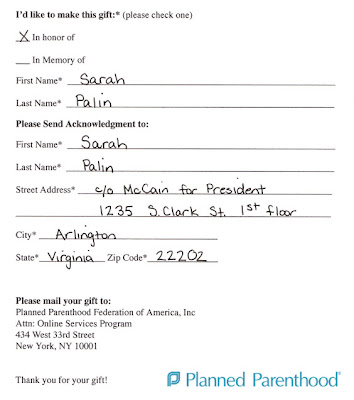 I'd like to make this gift:* (please check one)
X In honor of
In Memory of
First Name* Sarah
Last Name* Palin
Please Send Acknowledgment to:
First Name* Sarah
Last Name* Palin
Street Address* c/o McCain for President
1235 S. Clark St. 1st floor
City* Arlington
State* Virginia Zip Code* 22202
Please mail your gift to:
Planned Parenthood Federation of America, Inc
Attn: Online Services Program
434 West 33rd Street
New York, NY 10001
Thank you for your gift!
Planned Parenthood®